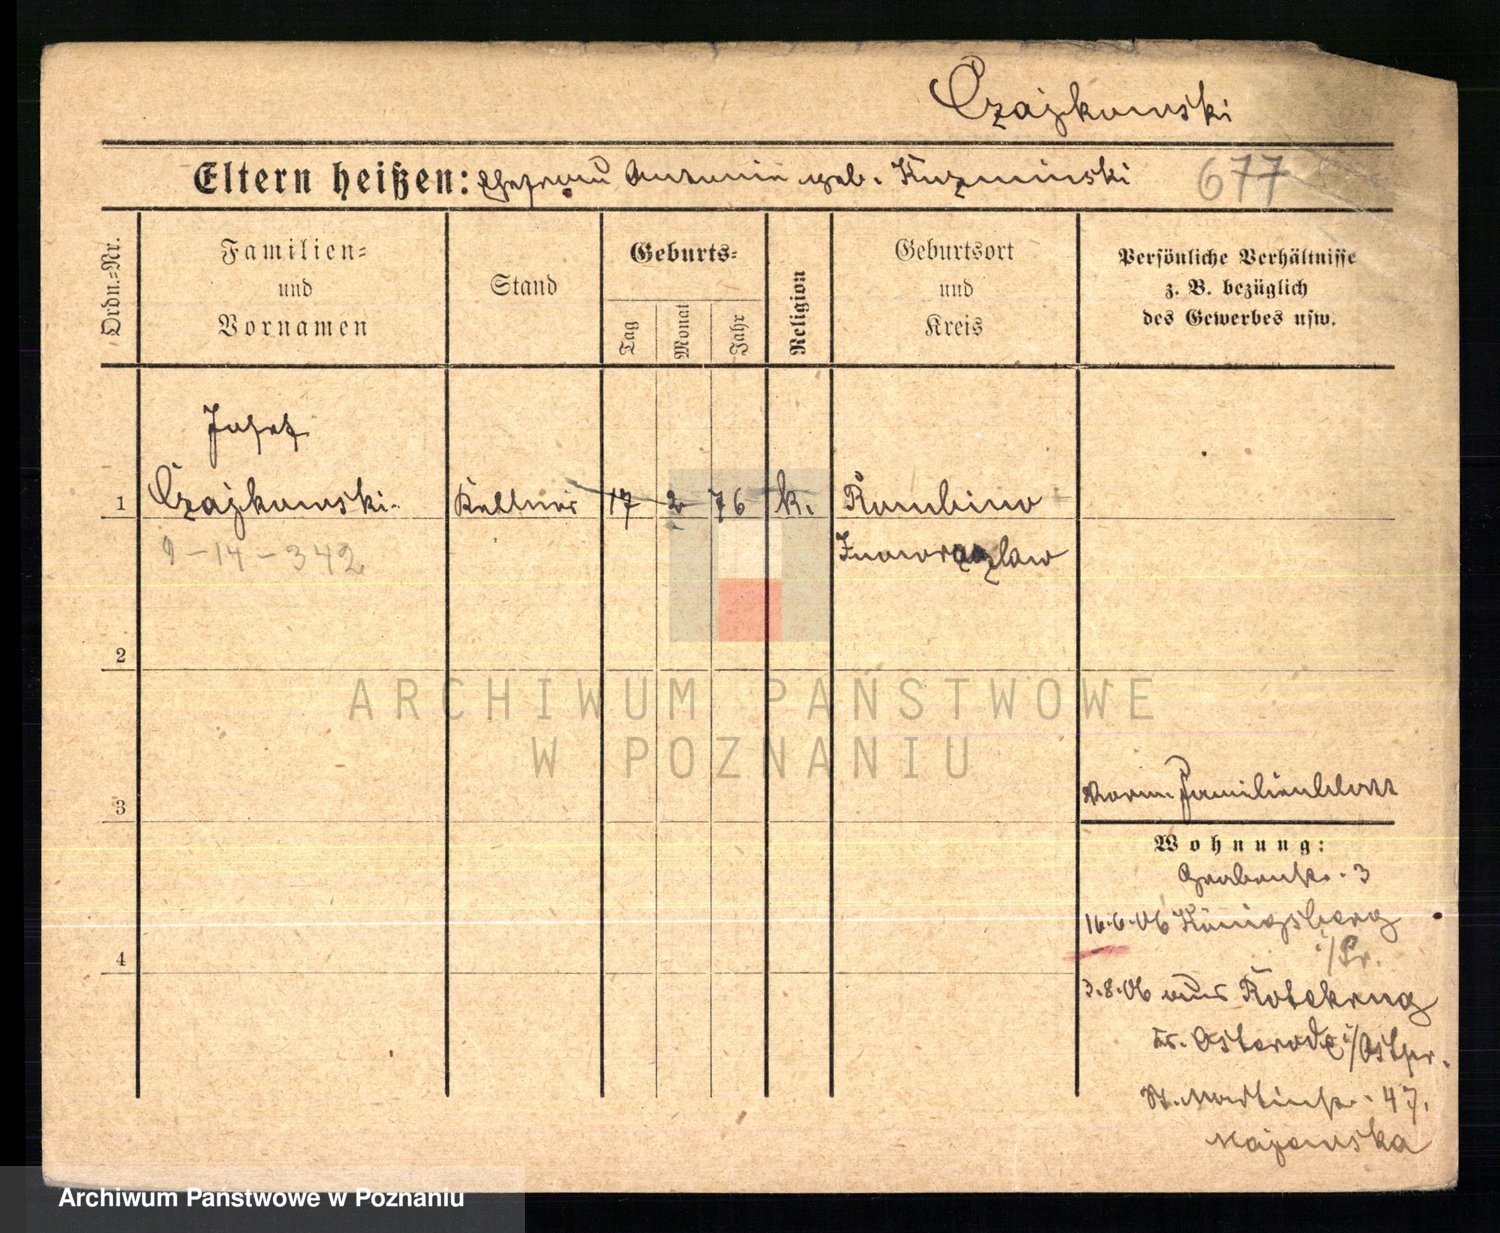 Czajkowski
Eltern heißen: Ehefrau Antonie geb. Kuzminski 677
Ordn.-Nr.
Familien-
und
Vornamen
Stand
Geburts-
Tag
Monat
Jahr
Religion
Geburtsort
und
Kreis
Persönliche Verhältnisse
z. B. bezüglich
des Gewerbes usw.
Josef
1 Czajkowski Kellner 17 2 76 k. Rombino
Inowrazlaw
9-14-342
2
ARCHIWUM PAŃSTWOWE
W POZNANIU
3
Familienblatt
Wohnung:
Grabenstr. 3
16.6.06 Königsberg
i/Pr.
4
3.8.06 aus Rotekrug
Kr. Osterode i/Ostpr.
St. Martinstr. 47.
Majewska
Archiwum Państwowe w Poznaniu